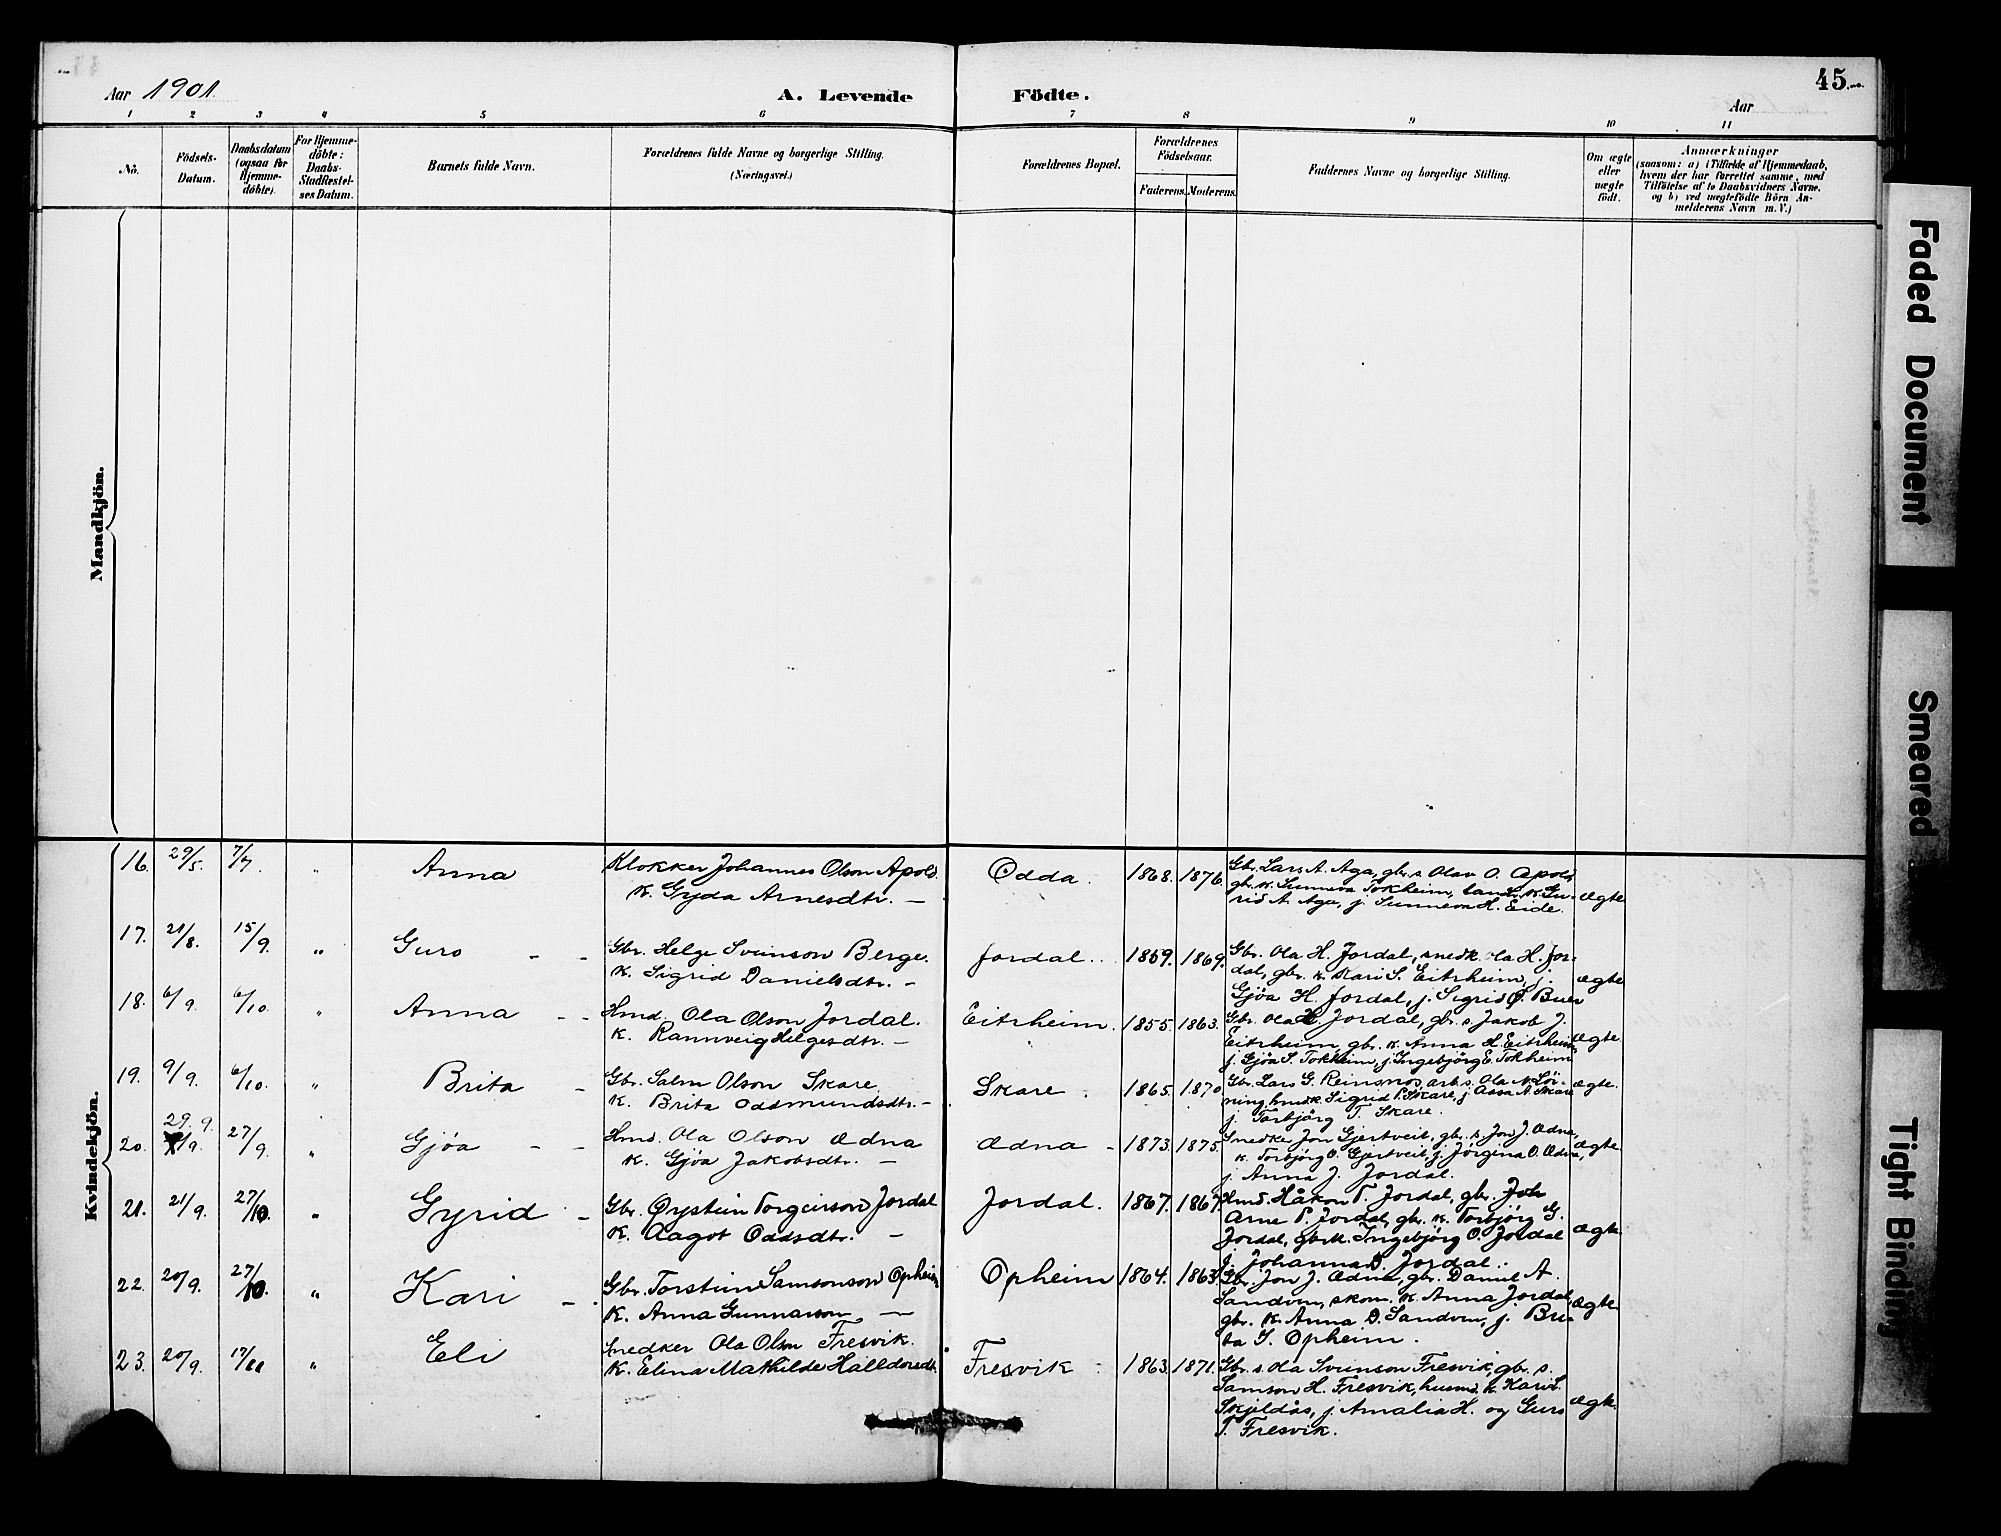 45
Aar 1901.
A. Levende Födte.
Aar
1 2 3 4 5 6 7 8 9 10 11
No.
Födsels-
Datum.
Daabsdatum
(ogsaa for
Hjemme-
döbte).
For Hjemme-
döbte:
Daabs-
Stadfæstel-
ses Datum.
Barnets fulde Navn.
Forældrenes fulde Navne og borgerlige Stilling.
(Næringsvei.)
Forældrenes Bopæl.
Forældrenes
Födselsaar.
Faderens. Moderens.
Faddernes Navne og borgerlige Stilling.
Om ægte
eller
uægte
födt.
Anmærkninger
(saasom: a) i Tilfælde af Hjemmedaab,
hvem der har forrettet samme, med
Tilföielse af to Daabsvidners Navne.
og b) ved uægtefödte Börn An-
melderens Navn m. V.)
Mandkjön.
Kvindekjön.
16. 29/5. 7/7. " Anna
Klokker Johannes Olson Apold.
k. Gyda Arnesdtr. —
Odda. 1868. 1876.
Gbr. Lars A. Aga, gbr. s. Olav O. Apold,
gbr. k. Sunneva Tokheim, k. Gu-
rid A. Aga, j. Sunneva H. Eide.
ægte
17. 21/8. 15/9. " Guro - -
Gbr. Helge Svenson Berge.
k. Sigrid Danielsdtr. —
Jordal. 1859. 1869.
Gbr. Ola H. Jordal, snedk. Ola H. Jor-
dal, gbr. k. Kari S. Eitrheim, j.
Gjøa H. Jordal, j. Sigrid Ø. Buer
ægte
18. 6/9. 6/10. " Anna - -
Hmd. Ola Olson Jordal.
k. Rannveig Helgesdtr. —
Eitrheim. 1855. 1863.
Gbr. Ola H. Jordal, gbr. s. Jakob J.
Eitrheim, gbr. k. Anna H. Eitrheim,
j. Gjøa S. Tokheim, j. Ingebjörg E. Tokheim
ægte
19. 9/9. 6/10. " Brita -
Gbr. Salm Olson Skare.
k. Brita Oddmundsdtr. —
Skare. 1865. 1870.
Gbr. Lars G. Reinsnos, arb. s. Ola N. Lör-
ning, k. Sigrid P. Skare, j. Aasa A. Skare
j. Torbjörg T. Skare.
ægte.
29. 9.
20. /9. 27/9. " Gjøa - -
Hmd. Ola Olson Ædna
k. Gjøa Jakobsdtr. —
Ædna - 1873. 1875.
Snedke Jon Gjertveit, gbr. s. Jon J. Ædna,
k. Torbjörg O. Gjertveit, j. Jörgina O. Ædna,
j. Anna J. Jordal.
ægte.
21. 21/9. 27/10. " Gyrid -
Gbr. Øystein Torgeirson Jordal
k. Aagot Oddsdtr. —
Jordal. 1867. 1867.
Hmd. Håkon T. Jordal, gbr.
Arne P. Jordal, gbr. k. Torbjörg G.
Jordal, gbrk. Ingebjörg O. Jordal
j. Johanna D. Jordal.
ægte.
22. 20/9. 27/10. " Kari -
Gbr. Torstein Samsonson Opheim
k. Anna Gunnarson —
Opheim 1864. 1863.
Gbr. Jon J. Ædna, gbr. Daniel A.
Sandven, skom. k. Anna Jordal,
gbr. k. Anna D. Sandven, j. Bri-
ta S. Opheim.
ægte
23. 20/9. 17/11. " Eli
Snedker Ola Olsn Fresvik.
k. Elina Mathilde Halldorsdtr.
Fresvik - 1863. 1871.
Gbr. s. Ola Svenson Fresvik, gbr. s.
Samson H. Fresvik, husmd. k. Kari L.
Skjeldås, j. Amalia H. og Guro
T. Fresvik.
ægte.
Faded Document
Smeared
Tight Binding